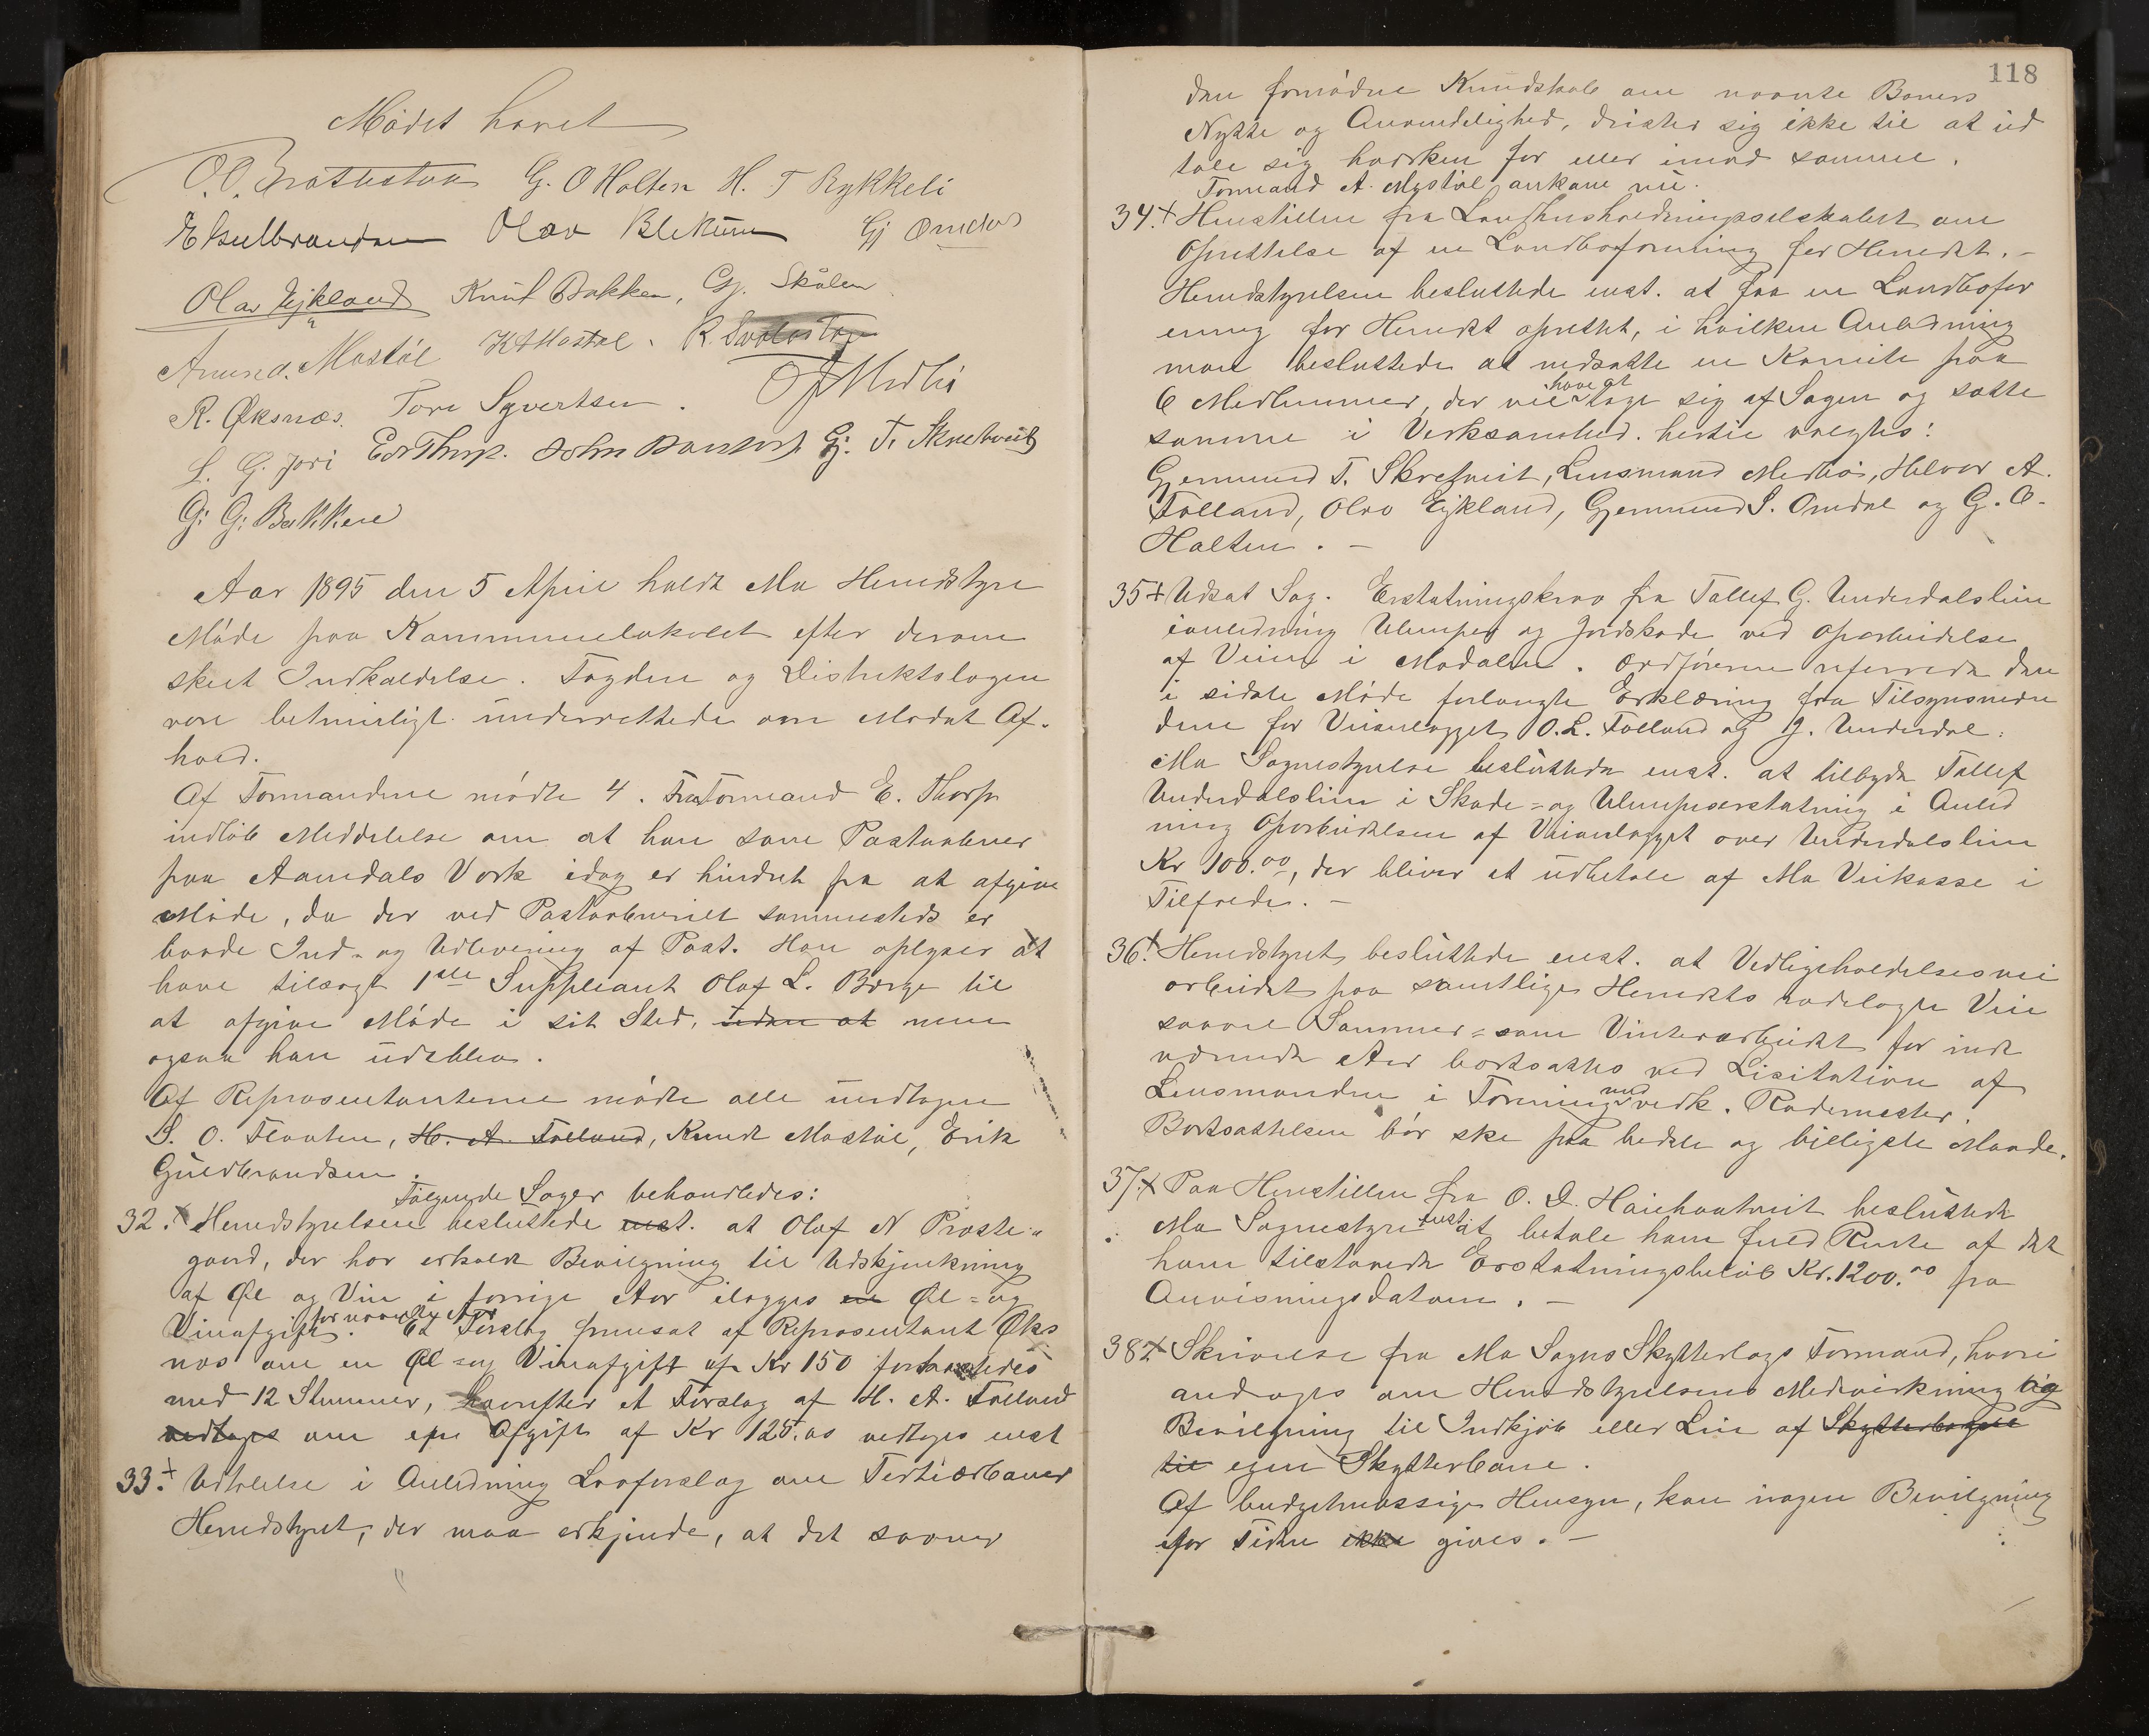 Mødet hævet
O.O. Brattestaa G. O Holten H. T Rykkeli
E Gulbrandsen Olav Blekum Gj Omdal
Olav Ejkland Knut Bakken, Gj. Skålen
Amund. Mostøl K A Mostøl. R.
R. Øksnæs. Tore Syvertsen. O J Medbø
L. G. Jori Edv Thorp. John Gj. T. Skrehveit
G: G: Bakken
Aar 1895 den 5 April holdt Mo Herredstyre
Møde paa Kommunelokalet efter derom
skeet Indkaldelse. Fogden og Distriktslægen
vare betimeligt underrettede om Mødet Af-
hold.
Af Formændene mødte 4. Fra Formand E. Thorp
indløb Meddelelse om at han som Postaabner
paa Aamdals Værk idag er hindret fra at afgive
Møde, da der ved Postaabneriet sammesteds er
baade Ind- og Udlevering af Post. Han oplyser at
have tilsagt 1ste Suppleant Olaf L. Børge til
at afgive Møde i sit Sted, uden at men
ogsaa han udeblev.
Af Repræsentanterne mødte alle undtagen
S. O. Flaaten, H. A. Folland, Knudt Mostøl, Erik
Guldbrandsen.
Følgende Sager behandledes:
32. Herredstyrelsen besluttede enst. at Olaf N Præste-
gaard, der har erholdt Bevilgning til Udskjænkning
af Øl og Vin i forrige Aar ilægges en Øl- og
for nævnte Aar
Vinafgift. Et Forslag fremsat af Repræsentant Øks
næs om en Øl- og Vinafgift af Kr 150 forkastedes
med 12 Stemmer, hvorefter et Forslag af H. A. Folland
vedtoges om en Afgift af Kr 125.00 vedtoges enst
33. Udtalelse i Anledning Lovforslag om Tertiærbaner
Herredstyret, der maa erkjende, at det savner
118
den fornødne Kundskab om nævnte Baners
Nytte og Anvendelighed, drister sig ikke til at ud
tale sig hverken for eller imod samme.
Formand A. Mostøl ankom nu.
34. Henstillen fra Landhusholdningsselskabet om
Oprettelse af en Landboforening for Herredet. -
Herredstyrelsen besluttede enst. at faa en Landbofor
ening for Herredet oprettet, i hvilken Anledning
man besluttede at nedsætte en Komite paa
6 Medlemmer, der vil have at tage sig af Sagen og sætte
samme i Verksamhed. hertil valgtes:
Gjermund T. Skrehveit, Lensmand Medbø, Halvor A.
Folland, Olav Ejkland, Gjermund S. Omdal og G. O.
Holten. -
35 Udsat Sag. Erstatningskrav fra Tallef G. Underdalslien
ianledning Ulemper og Jordskade ved Oparbeidelse
af Veien i Modalen. Ordføreren refererede den
i sidste Møde forlangte Erklæring fra Tilsynsmæn
dene for Veianlægget O. L. Folland og J. Underdal.
Mo Sognestyrelse besluttede enst. at tilbyde Tallef
Underdalslien i Skade- og Ulempeerstatning i Anled
ning Oparbeidelsen af Veianlægget over Underdalslien
Kr 100.00, der bliver at udbetale af Mo Veikasse i
Tilfælde. -
36. Herredstyret besluttede enst. at Vedligeholdelsesvei
arbeidet paa samtlige Herredets rodelagte Veie
saavel Sommer- som Vinterarbeidet for indeværende Aar bortsættes ved Licitation af
Lensmanden i Forening med vedk. Rodemester.
Bortsættelsen bør ske paa bedste og billigste Maade.
37. Paa Henstillen fra O. D. Haichaatveit besluttede
Mo Sognestyre enst. at betale ham fuld Rente af det
ham tilstaaede Erstatningsbeløb Kr. 1200.00 fra
Anvisningsdatoen. -
38. Skrivelse fra Mo Sogns Skytterlags Formand, hvori
andrages om Herredstyrelsens Medvirkning og
Bevilgning til Indkjøb eller Leie af Skytterbane
til egen Skytterbane.
Af budgetmæssige Hensyn, kan ingen Bevilgning
for Tiden ikke gives. -